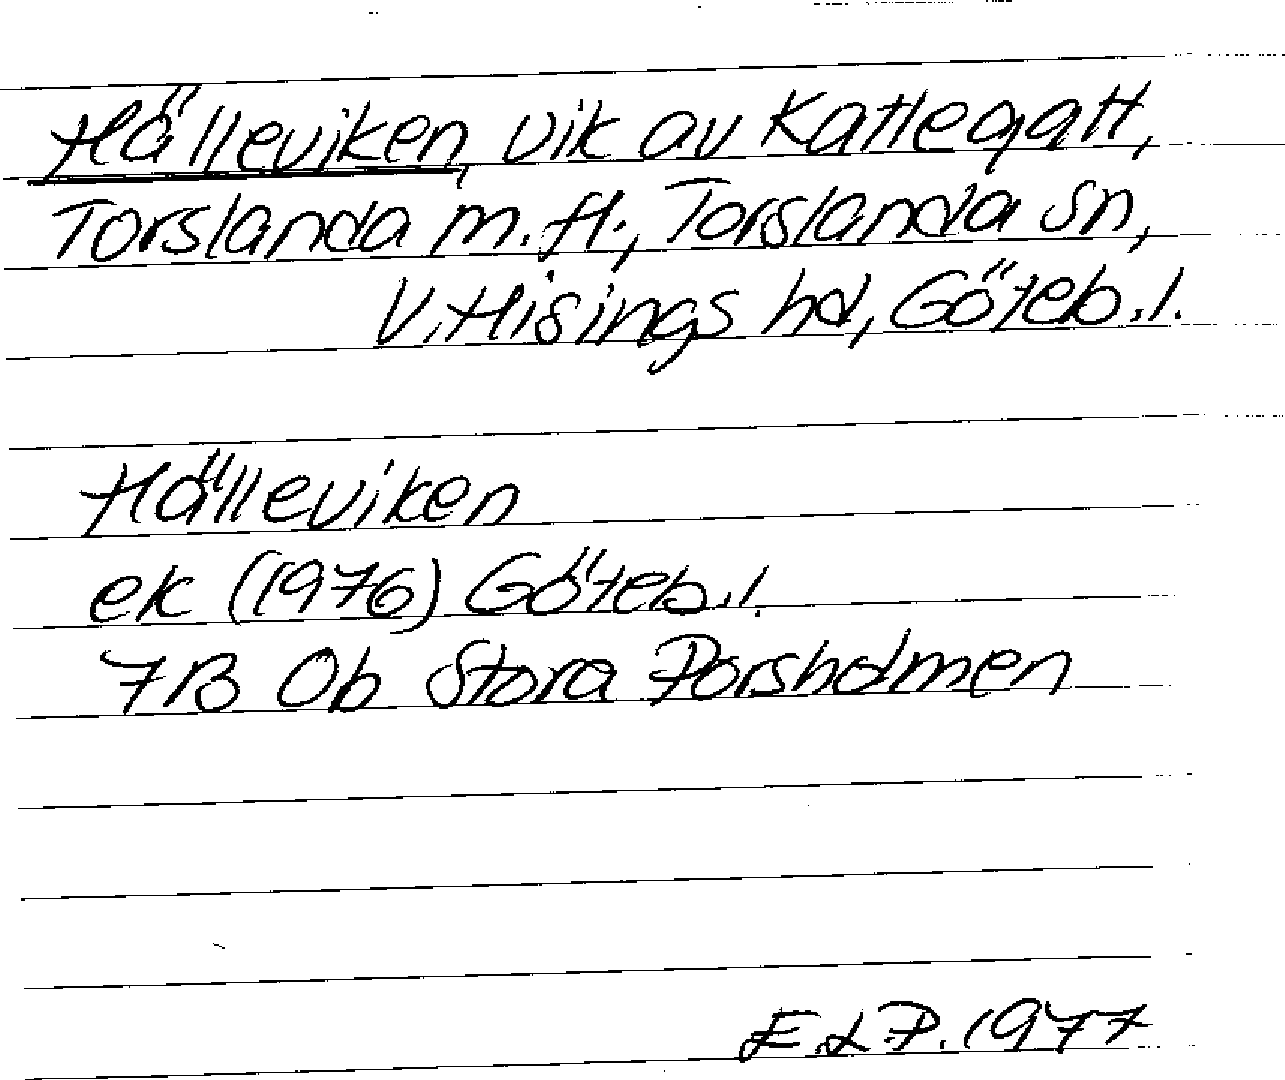 Hälleviken, vik av Kattegatt,
Torslanda m.fl., Torslanda sn,
V. Hisings hd, Göteb. l.
Hälleviken
ek (1976) Göteb. l.
7B 0b Stora Porsholmen
E.L.P. 1977